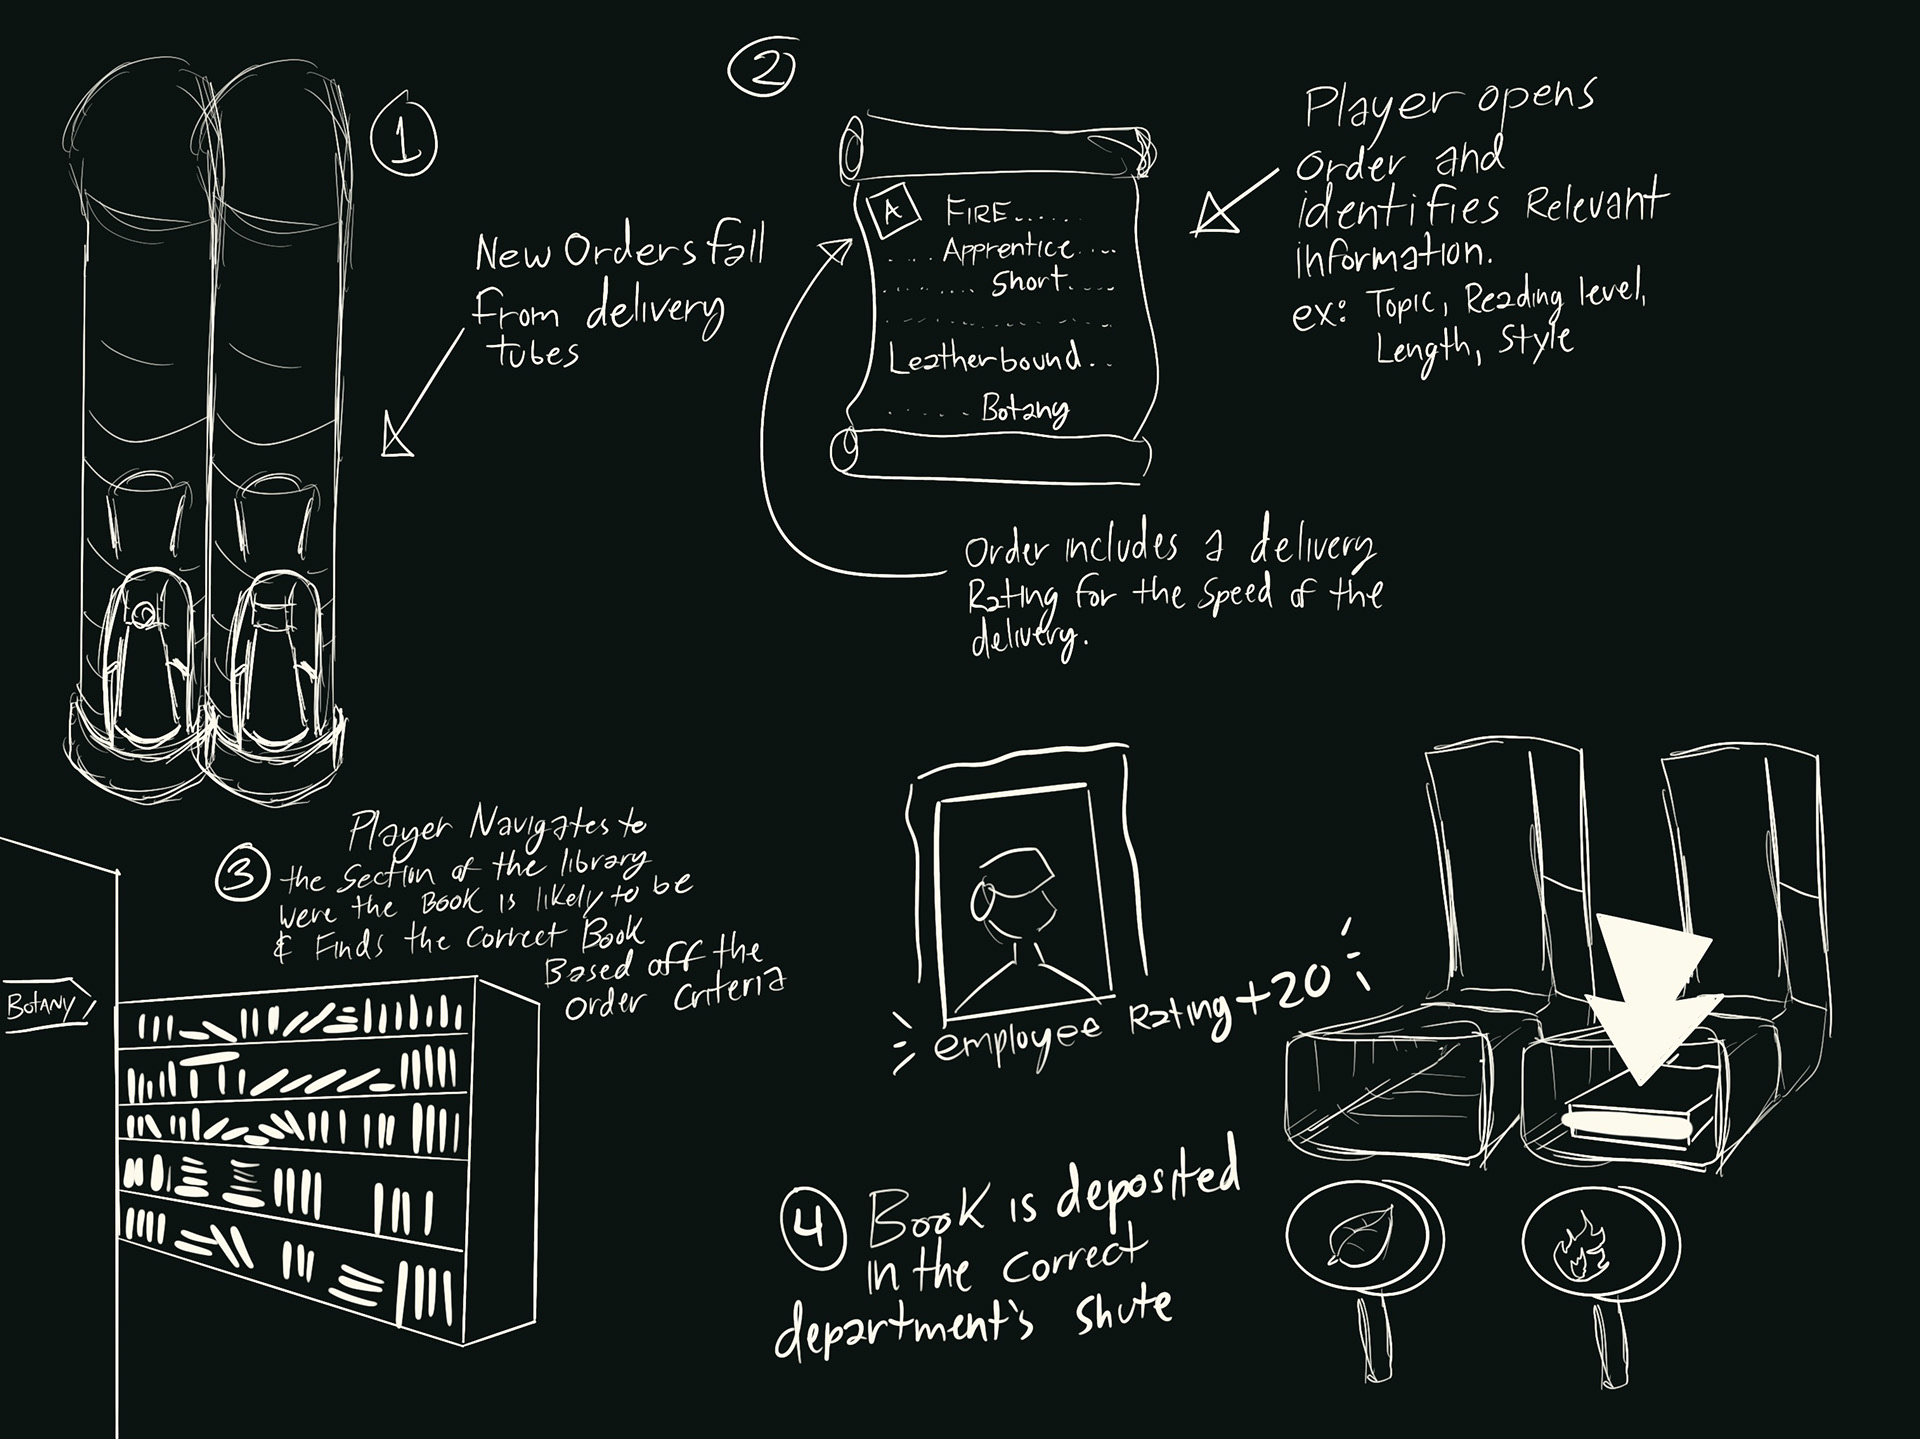 1
New Orders fall
from delivery
tubes
2
A
FIRE......
....Apprentice....
........Short.....
Leatherbound..
......Botany
Player opens
Order and
identifies Relevant
Information.
ex: Topic, Reading level,
Length, Style
Order includes a delivery
Rating for the speed of the
delivery.
3
Player Navigates to
the Section of the library
were the Book is likely to be
& Finds the correct Book
Based off the
order criteria
BOTANY
employee Rating +20
4
Book is deposited
in the correct
department's shute